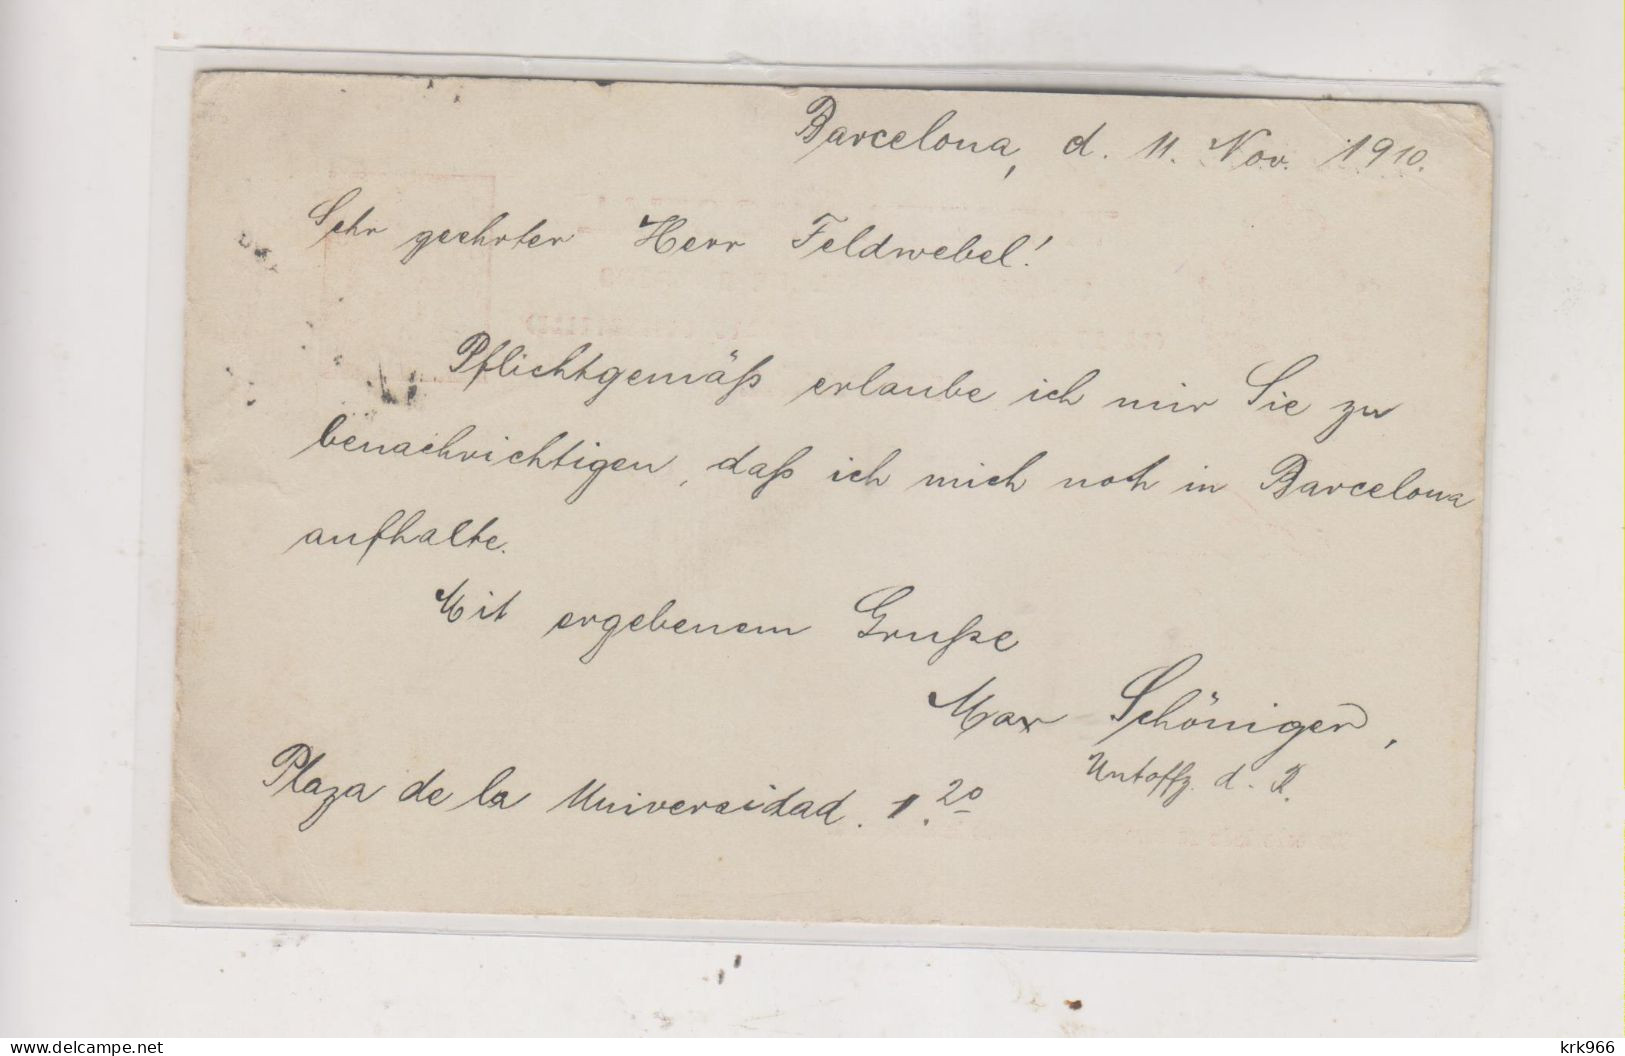 Barcelona, d. 11. Nov. 1910.
Sehr geehrter Herr Feldwebel!
Pflichtgemäß erlaube ich mir Sie zu
benachrichtigen, daß ich mich noch in Barcelona
aufhalte.
Mit ergebenem Gruße
Max Schöniger,
Untoffz. d. R.
Plaza de la Universidad. 1. 20
delcampe.net
krk966